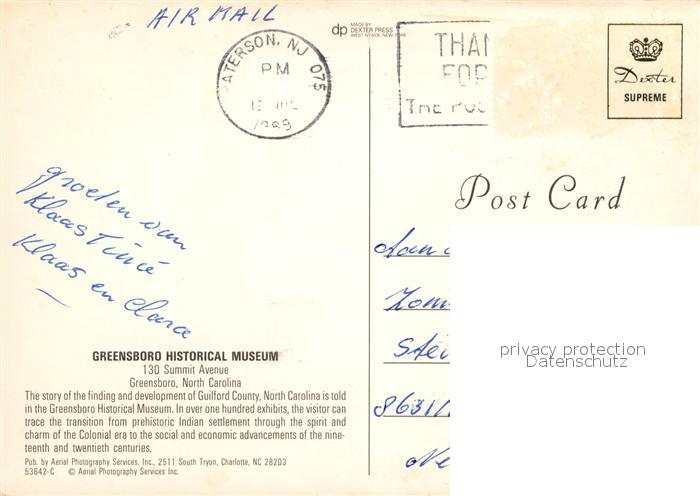 AIR MAIL
dp MADE BY
DEXTER PRESS
WEST NYACK, NEW YORK
PATERSON, NJ 075
PM
1989
THAN
FOR
THE
Dexter
SUPREME
Post Card
groeten van
Klaas Tinie
Klaas en Clara
Aan
Stei
8631
Ne
privacy protection
Datenschutz
GREENSBORO HISTORICAL MUSEUM
130 Summit Avenue
Greensboro, North Carolina
The story of the finding and development of Guilford County, North Carolina is told
in the Greensboro Historical Museum. In over one hundred exhibits, the visitor can
trace the transition from prehistoric Indian settlement through the spirit and
charm of the Colonial era to the social and economic advancements of the nine-
teenth and twentieth centuries.
Pub. by Aerial Photography Services, Inc., 2511 South Tryon, Charlotte, NC 28203
53642-C © Aerial Photography Services, Inc.